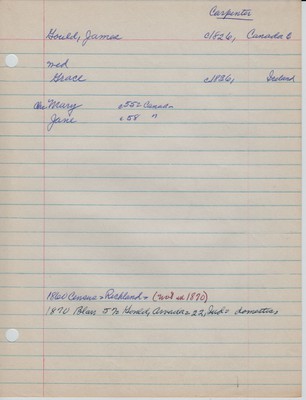 Carpenter
Gould, James c1826, Canada
med
Grace c1836, Ireland
Ch: Mary c55 Canada
Jane c58 "
1860 Census - Richland - (not in 1870)
1870 Blan 570 Gould, Amanda 22, Ind. domestic